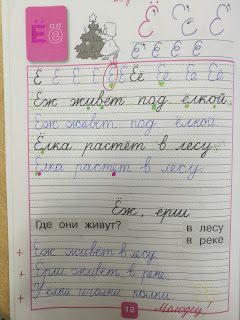 Ёё
Ё Ё Ё
Ё Ё Ё Ё
Ё Ё Ё Ё Ё Ё Ёе Ёе Ее Ёё
Ёж живёт под ёлкой.
Ёж живёт под ёлкой
Ёлка растёт в лесу.
Ёлка растёт в лесу.
Ёж, ерш
Где они живут?
в лесу
в реке
Ёж живёт в лесу.
Ёрш живёт в реке.
У ёлки иголки колки.
12
Молодец!